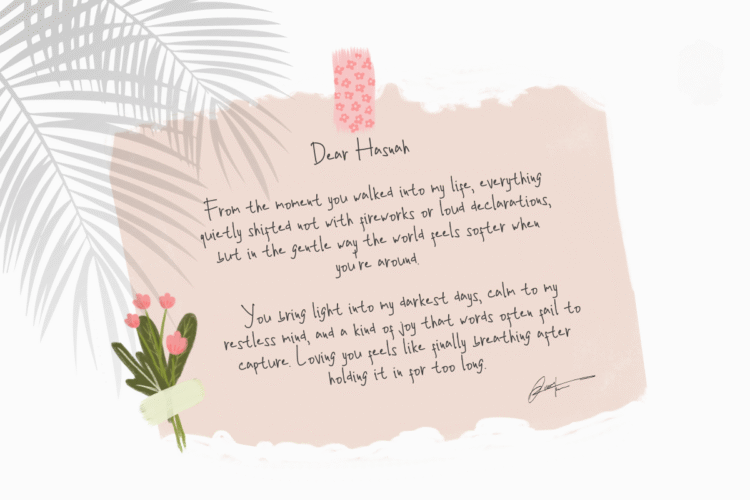 Dear Hasnah
From the moment you walked into my life, everything
quietly shifted not with fireworks or loud declarations,
but in the gentle way the world feels softer when
you're around.
You bring light into my darkest days, calm to my
restless mind, and a kind of joy that words often fail to
capture. Loving you feels like finally breathing after
holding it in for too long.